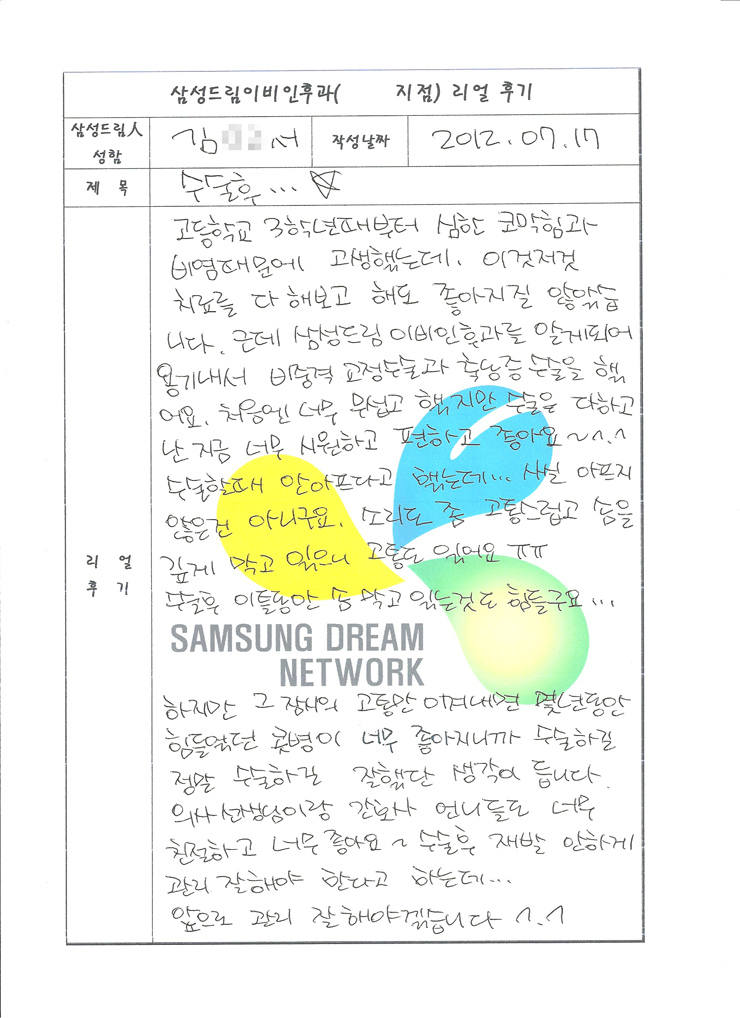 삼성드림이비인후과( 지점) 리얼 후기
삼성드림人
성함
김 서
작성날짜
2012.07.17
제 목
수술후...
리 얼
후 기
고등학교 3학년때부터 심한 코막힘과
비염때문에 고생했는데. 이것저것
치료를 다 해보고 해도 좋아지질 않았습
니다. 근데 삼성드림 이비인후과를 알게되어
용기내서 비중격 교정수술과 축농증 수술을 했
어요. 처음엔 너무 무섭고 했지만 수술을 다하고
난 지금 너무 시원하고 편하고 좋아요~^.^
수술할때 안아프다고 했는데... 사실 아프지
않은건 아니구요. 소리도 좀 고통스럽고 솜을
깊게 막고 있으니 고통도 있어요 ㅠㅠ
수술후 이틀동안 솜 막고 있는것도 힘들구요...
SAMSUNG DREAM
NETWORK
하지만 그 잠시의 고통만 이겨내면 몇년동안
힘들었던 콧병이 너무 좋아지니까 수술하길
정말 수술하길 잘했단 생각이 듭니다.
의사선생님이랑 간호사 언니들도 너무
친절하고 너무 좋아요~ 수술후 재발 안하게
관리 잘해야 한다고 하는데...
앞으로 관리 잘해야겠습니다 ^.^